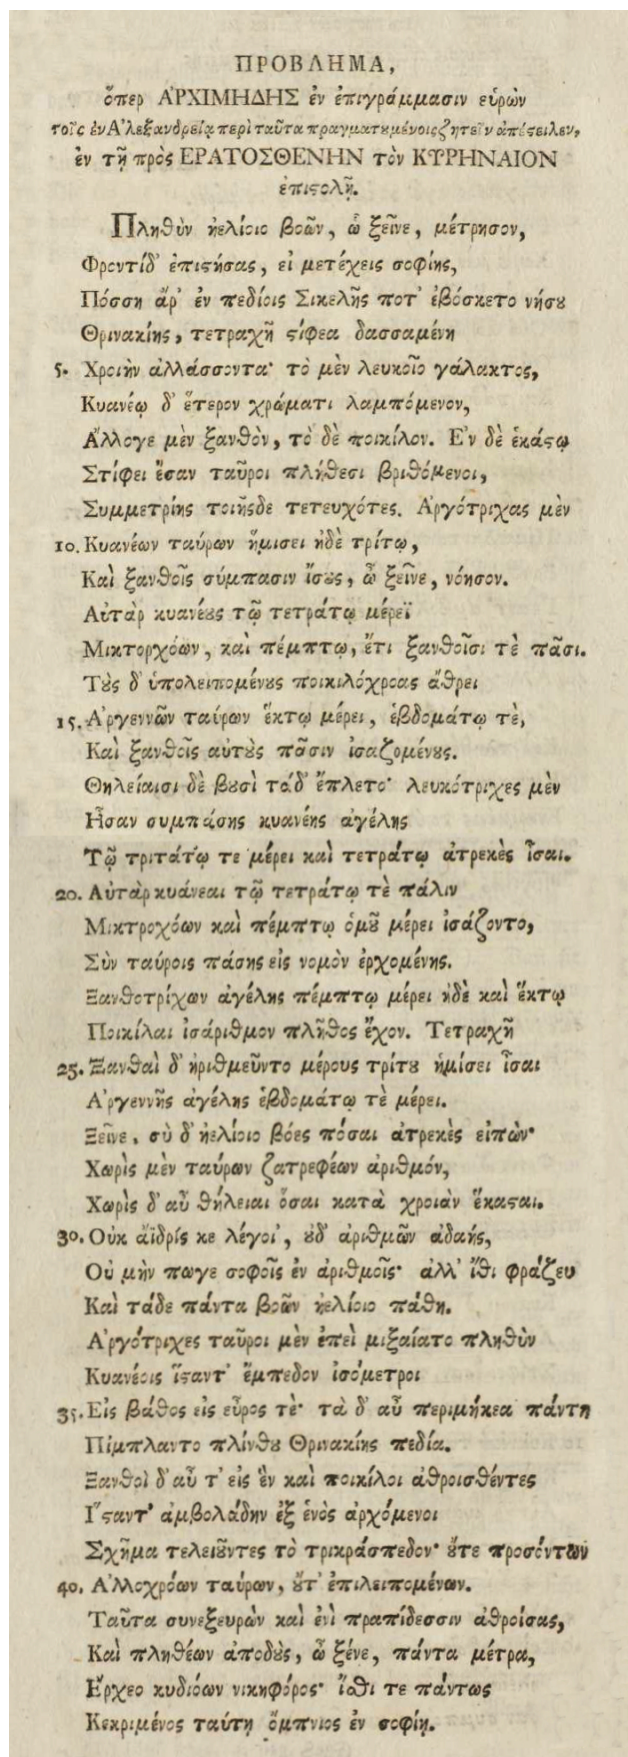 ΠΡΟΒΛΗΜΑ,
ὅπερ ἈΡΧΙΜΗΔΗΣ ἐν ἐπιγράμμασιν εὑρὼν
τοῖς ἐν Ἀλεξανδρείᾳ περὶ ταῦτα πραγματȣμένοις ζητεῖν ἀπέϛειλεν,
ἐν τῇ πρὸς ΕΡΑΤΟΣΘΕΝΗΝ τὸν ΚΥΡΗΝΑΙΟΝ
ἐπιϛολῇ.
Πληθὺν ἠελίοιο βοῶν, ὦ ξεῖνε, μέτρησον,
Φροντίδ' ἐπιϛήσας, εἰ μετέχεις σοφίης,
Πόσση ἄρ' ἐν πεδίοις Σικελῆς ποτ' ἐβόσκετο νήσȣ
Θρινακίης, τετραχῆ ϛίφεα δασσαμένη
5. Χροιὴν ἀλλάσσοντα· τὸ μὲν λευκοῖο γάλακτος,
Κυανέῳ δ' ἕτερον χρώματι λαμπόμενον,
Ἄλλογε μὲν ξανθὸν, τὸ δὲ ποικίλον. Ἐν δὲ ἑκάϛῳ
Στίφει ἔσαν ταῦροι πλήθεσι βριθόμενοι,
Συμμετρίης τοιῆσδε τετευχότες. Ἀργότριχας μὲν
10. Κυανέων ταύρων ἡμισει ἠδὲ τρίτῳ,
Καὶ ξανθοῖς σύμπασιν ἴσȣς, ὦ ξεῖνε, νόησον.
Αὐτὰρ κυανέȣς τῷ τετράτῳ μέρεϊ
Μικτορχόων, καὶ πέμπτῳ, ἔτι ξανθοῖσι τὲ πᾶσι.
Τȣ̀ς δ' ὑπολειπομένȣς ποικιλόχροας ἄθρει
15. Ἀργεννῶν ταύρων ἕκτῳ μέρει, ἑβδομάτῳ τὲ,
Καὶ ξανθοῖς αὐτȣ̀ς πᾶσιν ἰσαζομένȣς.
Θηλείαισι δὲ βȣσὶ τάδ' ἔπλετο· λευκότριχες μὲν
Ἦσαν συμπάσης κυανέης ἀγέλης
Τῷ τριτάτῳ τε μέρει καὶ τετράτῳ ἀτρεκὲς ἶσαι.
20. Αὐτὰρ κυάνεαι τῷ τετράτῳ τὲ πάλιν
Μικτροχόων καὶ πέμπτῳ ὁμȣ̃ μέρει ἰσάζοντο,
Σὺν ταύροις πάσης εἰς νομὸν ἐρχομένης.
Ξανθοτρίχων ἀγέλης πέμπτῳ μέρει ἠδὲ καὶ ἕκτῳ
Ποικίλαι ἰσάριθμον πλῆθος ἔχον. Τετραχῆ
25. Ξανθαὶ δ' ἠριθμεῦντο μέρους τρίτȣ ἡμίσει ἶσαι
Ἀργεννῆς ἀγέλης ἑβδομάτῳ τὲ μέρει.
Ξεῖνε, σὺ δ' ἠελίοιο βόες πόσαι ἀτρεκὲς εἰπὼν·
Χωρὶς μὲν ταύρων ζατρεφέων ἀριθμόν,
Χωρὶς δ' αὖ θήλειαι ὅσαι κατὰ χροιὰν ἕκαϛαι.
30. Οὐκ ἄϊδρίς κε λέγοι', ȣ̓δ' ἀριθμῶν ἀδαής,
Οὐ μὴν πωγε σοφοῖς ἐν ἀριθμοῖς· ἀλλ' ἴθι φράζευ
Καὶ τάδε πάντα βοῶν ἠελίοιο πάθη.
Ἀργότριχες ταῦροι μὲν ἐπεὶ μιξαίατο πληθὺν
Κυανέοις ἵϛαντ' ἔμπεδον ἰσόμετροι
35. Εἰς βάθος εἰς εὖρος τὲ· τὰ δ' αὖ περιμήκεα πάντη
Πίμπλαντο πλίνθȣ Θρινακίης πεδία.
Ξανθοὶ δ' αὖ τ' εἰς ἓν καὶ ποικίλοι ἀθροισθέντες
Ἵϛαντ' ἀμβολάδην ἐξ ἑνὸς ἀρχόμενοι
Σχῆμα τελειȣ̃ντες τὸ τρικράσπεδον· ȣ̓́τε προσόντων
40. Ἀλλοχρόων ταύρων, ȣ̓́τ' ἐπιλειπομένων.
Ταῦτα συνεξευρὼν καὶ ἐνὶ πραπίδεσσιν ἀθροίσας,
Καὶ πληθέων ἀποδȣ̀ς, ὦ ξένε, πάντα μέτρα,
Ἔρχεο κυδιόων νικηφόρος· ἴσθι τε πάντως
Κεκριμένος ταύτῃ ὄμπνιος ἐν σοφίῃ.